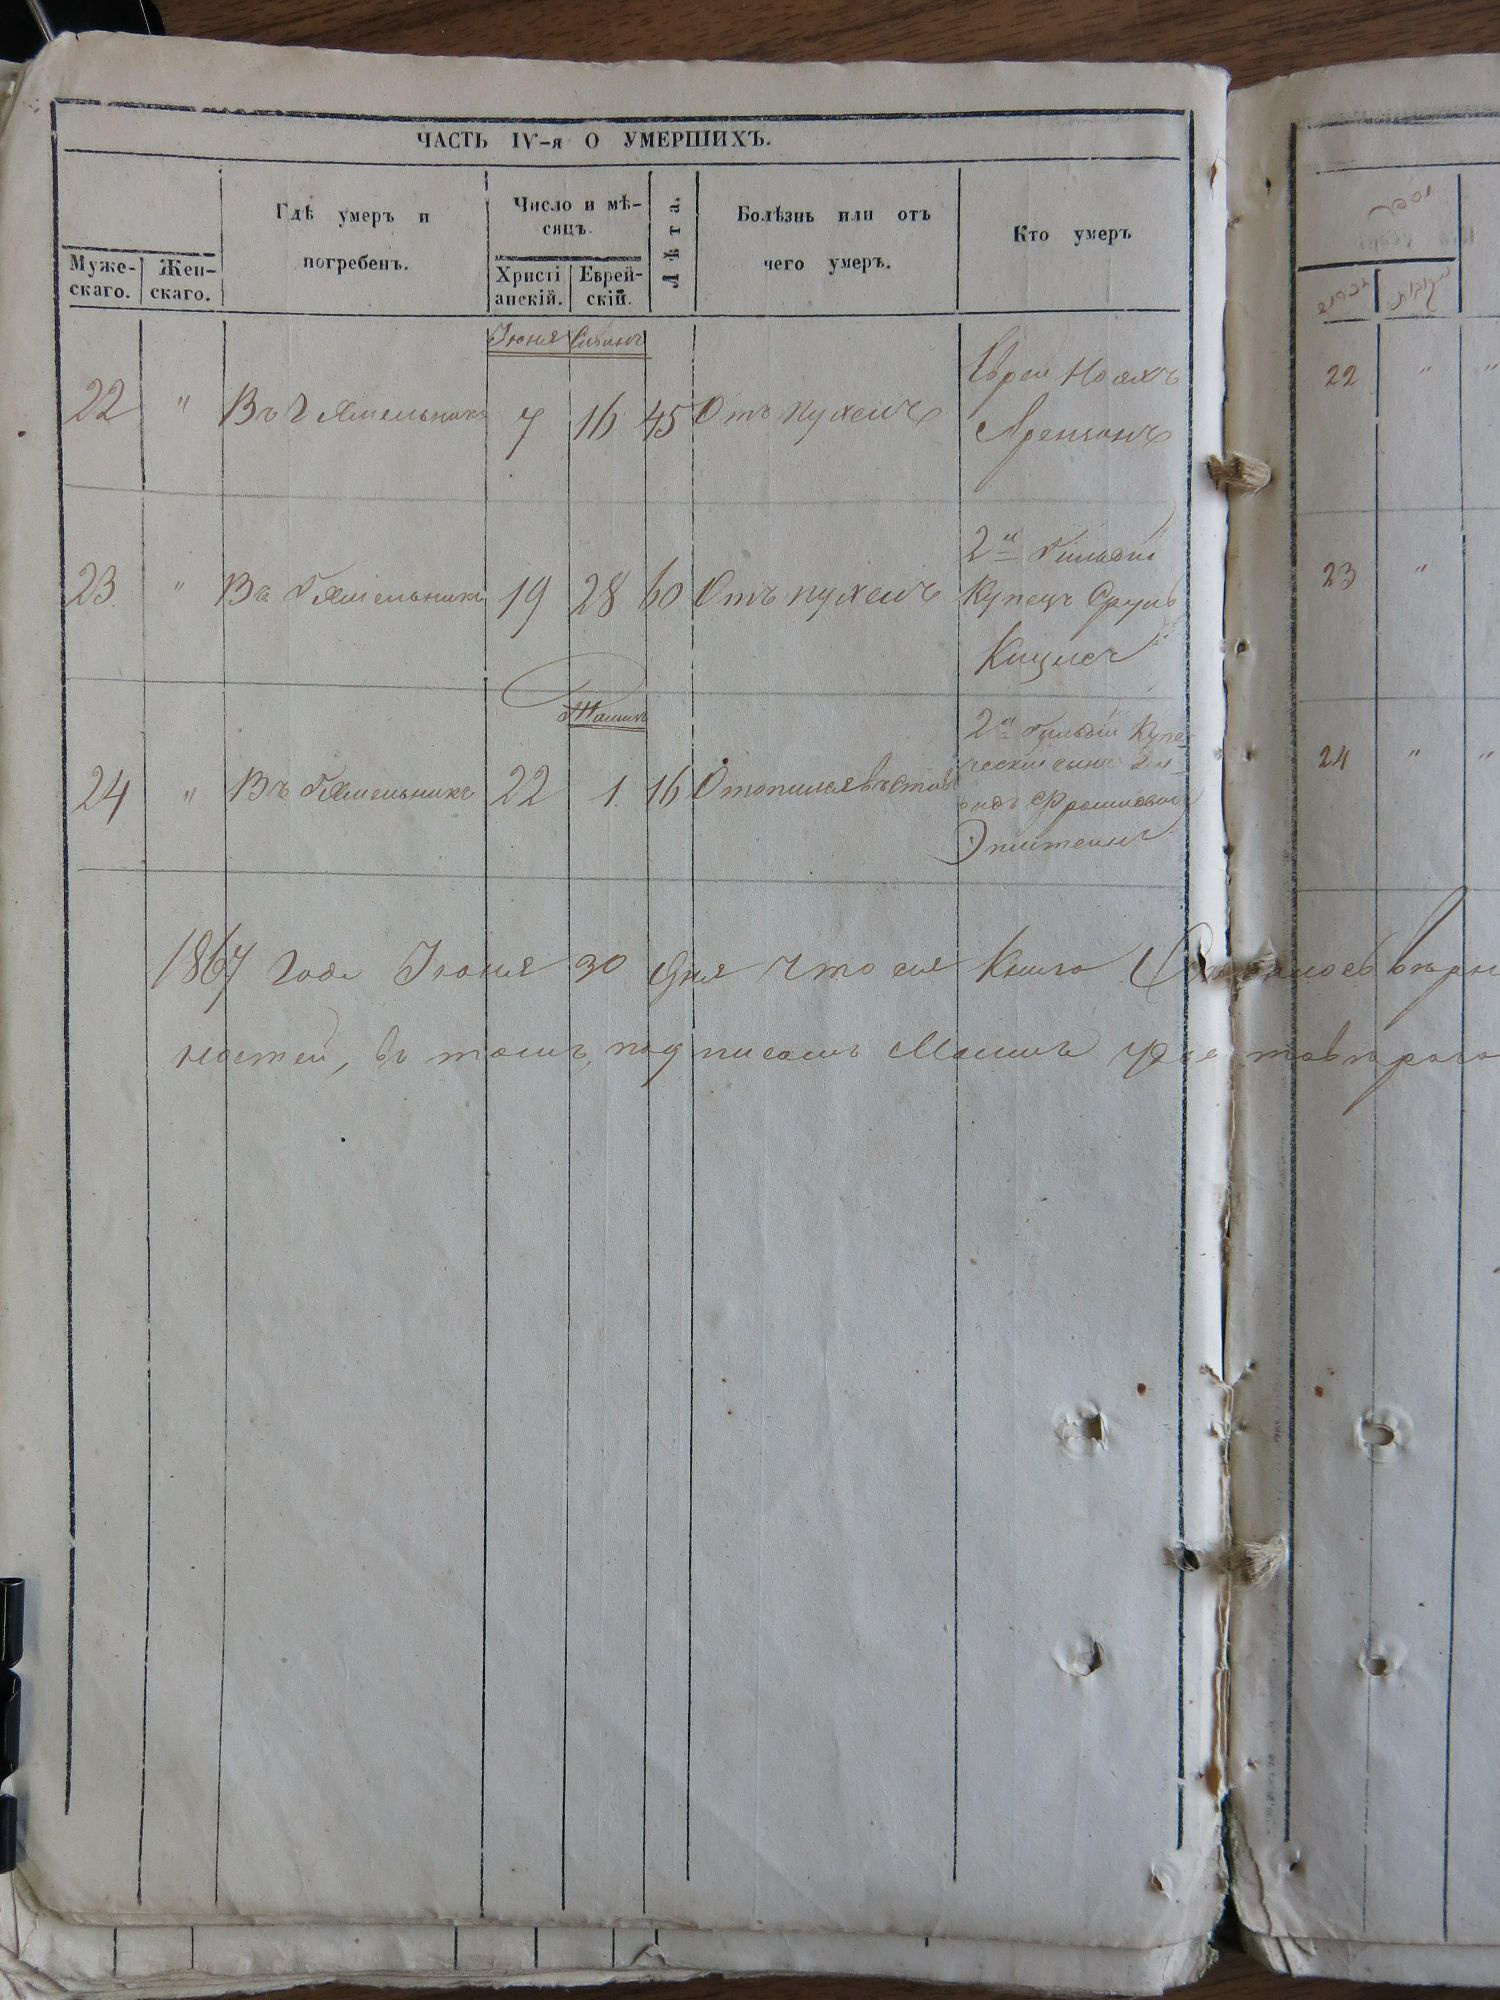 ЧАСТЬ IV-я О УМЕРШИХЪ.
Муже-
скаго.
Жен-
скаго.
Гдѣ умеръ и
погребенъ.
Число и мѣ-
сяцъ.
Христі
анскій.
Еврей-
скій.
Лѣта.
Болѣзнь или отъ
чего умеръ.
Кто умеръ
Іюня Сиванъ
22 " Въ г Хмельникѣ 7 16 45 Отъ пухлич
Еврей Ноахъ
Аренсонъ
23 " Въ г Хмельникѣ 19 28 60 Отъ пухлич
2й Гильдіи
Купецъ Сруль
Кицисъ
Тамизъ
24 " Въ г Хмельникѣ 22 1. 16 Отопился въ ставѣ
2й Гильдіи Купе-
ческій сынъ
Фроимовичъ
Эпштеинъ
1867 года Іюня 30 дня что сія Книга вѣрн
ностей, въ томъ подписомъ
22 " "
23 "
24 " "